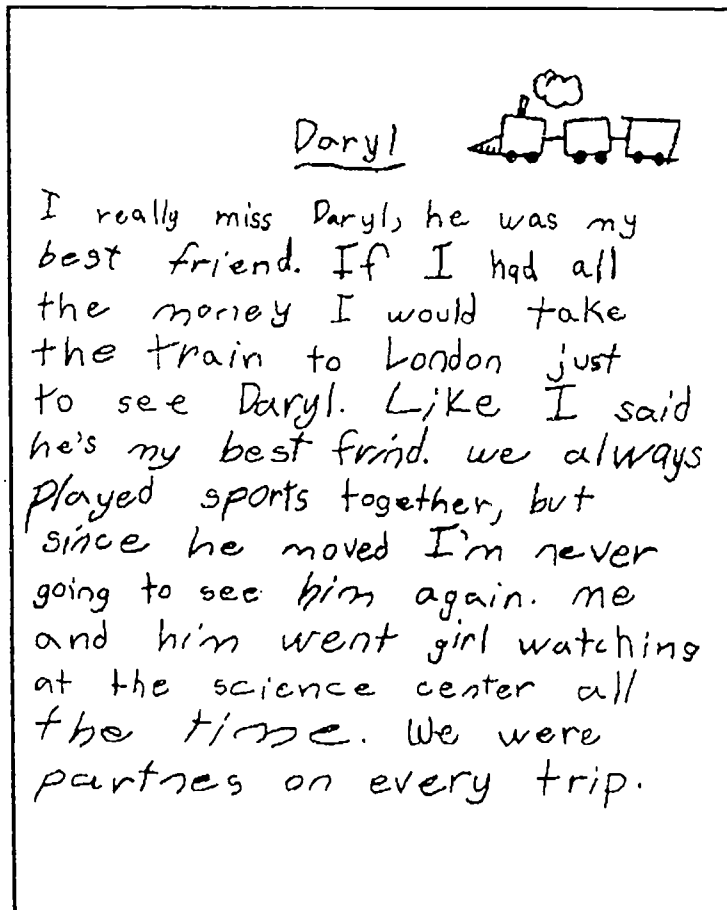 Daryl
I really miss Daryl, he was my
best friend. If I had all
the money I would take
the train to London just
to see Daryl. Like I said
he's my best frind. we always
played sports together, but
since he moved I'm never
going to see him again. me
and him went girl watching
at the science center all
the time. We were
partnes on every trip.